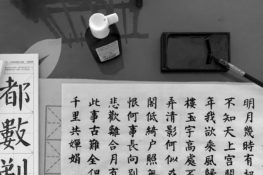 明月幾時有
不知天上宮闕
年我欲乘風歸
樓玉宇高處
弄清影何似
閣低綺戶照無
恨何事長向
悲歡離合月有
此事古難全但
千里共嬋娟
都數